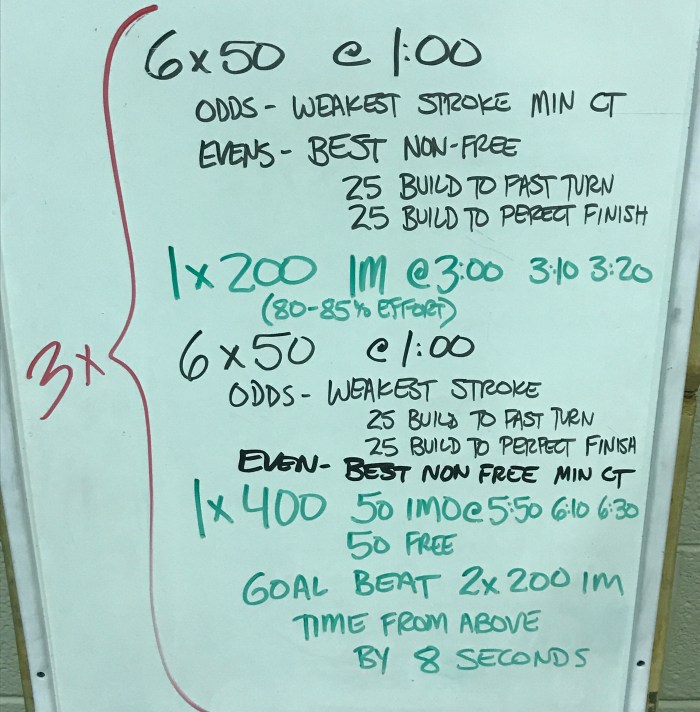 6x50 @ 1:00
ODDS - WEAKEST STROKE MIN CT
EVENS - BEST NON-FREE
25 BUILD TO FAST TURN
25 BUILD TO PERECT FINISH
1x200 IM @ 3:00 3:10 3:20
(80-85% EFFORT)
3x
6x50 @ 1:00
ODDS - WEAKEST STROKE
25 BUILD TO FAST TURN
25 BUILD TO PERFECT FINISH
EVEN - BEST NON FREE MIN CT
1x400 50 IMO @ 5:50 6:10 6:30
50 FREE
GOAL BEAT 2x200 IM
TIME FROM ABOVE
BY 8 SECONDS